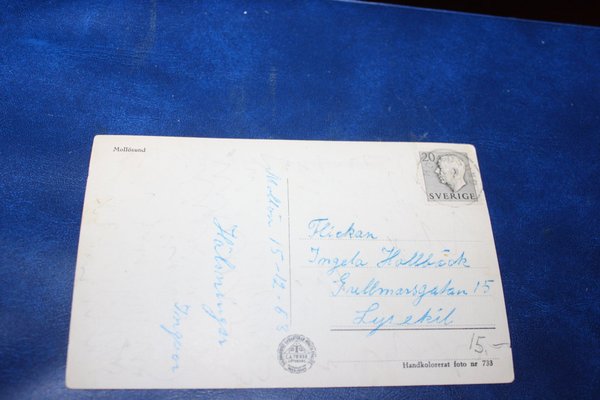 Mollösund
20
SVERIGE
15-12-53
Hälsningar
Ingvor
Flickan
Ingela Hallbäck
Gullmarsgatan 15
Lysekil
15,-
Handkolorerat foto nr 733